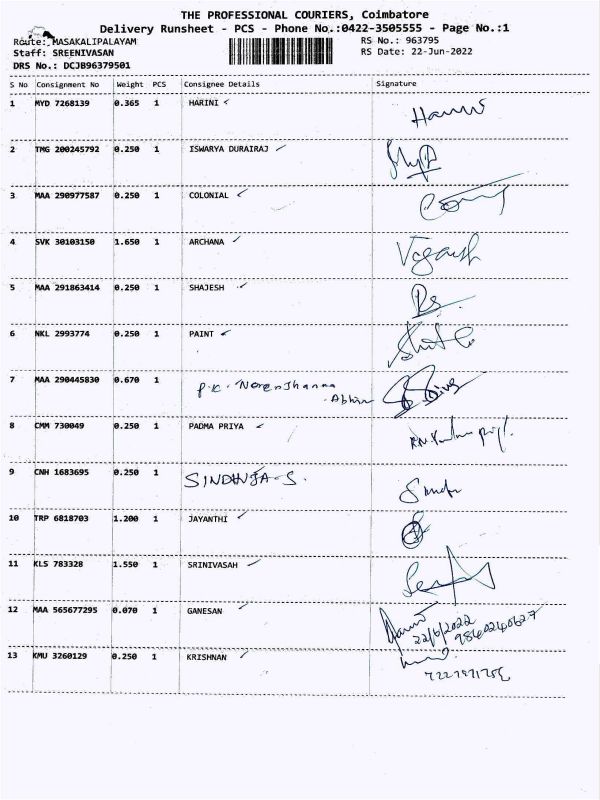 THE PROFESSIONAL COURIERS, Coimbatore
Delivery Runsheet - PCS - Phone No.:0422-3505555 - Page No.:1
Route: MASAKALIPALAYAM RS No.: 963795
Staff: SREENIVASAN RS Date: 22-Jun-2022
DRS No.: DCJB96379501
S No Consignment No Weight PCS Consignee Details Signature
1 MYD 7268139 0.365 1 HARINI
2 TMG 200245792 0.250 1 ISWARYA DURAIRAJ
3 MAA 290977587 0.250 1 COLONIAL
4 SVK 30103150 1.650 1 ARCHANA
5 MAA 291863414 0.250 1 SHAJESH
6 NKL 2993774 0.250 1 PAINT
7 MAA 290445830 0.670 1 P.K.
8 CMM 730049 0.250 1 PADMA PRIYA
9 CNH 1683695 0.250 1 SINDHUJA-S.
10 TRP 6818703 1.200 1 JAYANTHI
11 KLS 783328 1.550 1 SRINIVASAH
12 MAA 565677295 0.070 1 GANESAN
22/6/2022
9840240627
13 KMU 3260129 0.250 1 KRISHNAN